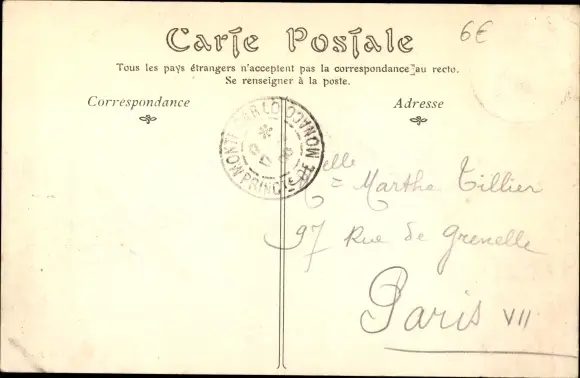 Carte Postale
6€
Tous les pays étrangers n'acceptent pas la correspondance au recto.
Se renseigner à la poste.
Correspondance
Adresse
MONTE CARLO
PRINCTE DE MONACO
Melle Martha Tillier
97 Rue de Grenelle
Paris VII